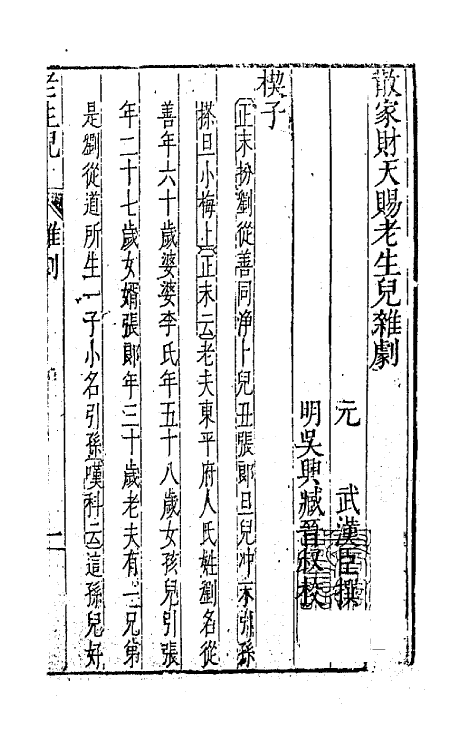 散家財天賜老生兒雜劇
元　武漢臣撰
明吳興臧晉叔校
楔子
正末扮劉從善同淨卜兒丑張郎旦兒冲末引孫
搽旦小梅上正末云老夫東平府人氏姓劉名從
善年六十歲婆婆李氏年五十八歲女孩兒引張
年二十七歲女婿張郎年三十歲老夫有一兄弟
是劉從道所生一子小名引孫嘆科云這孫兒好
老生兒
雜劇
一